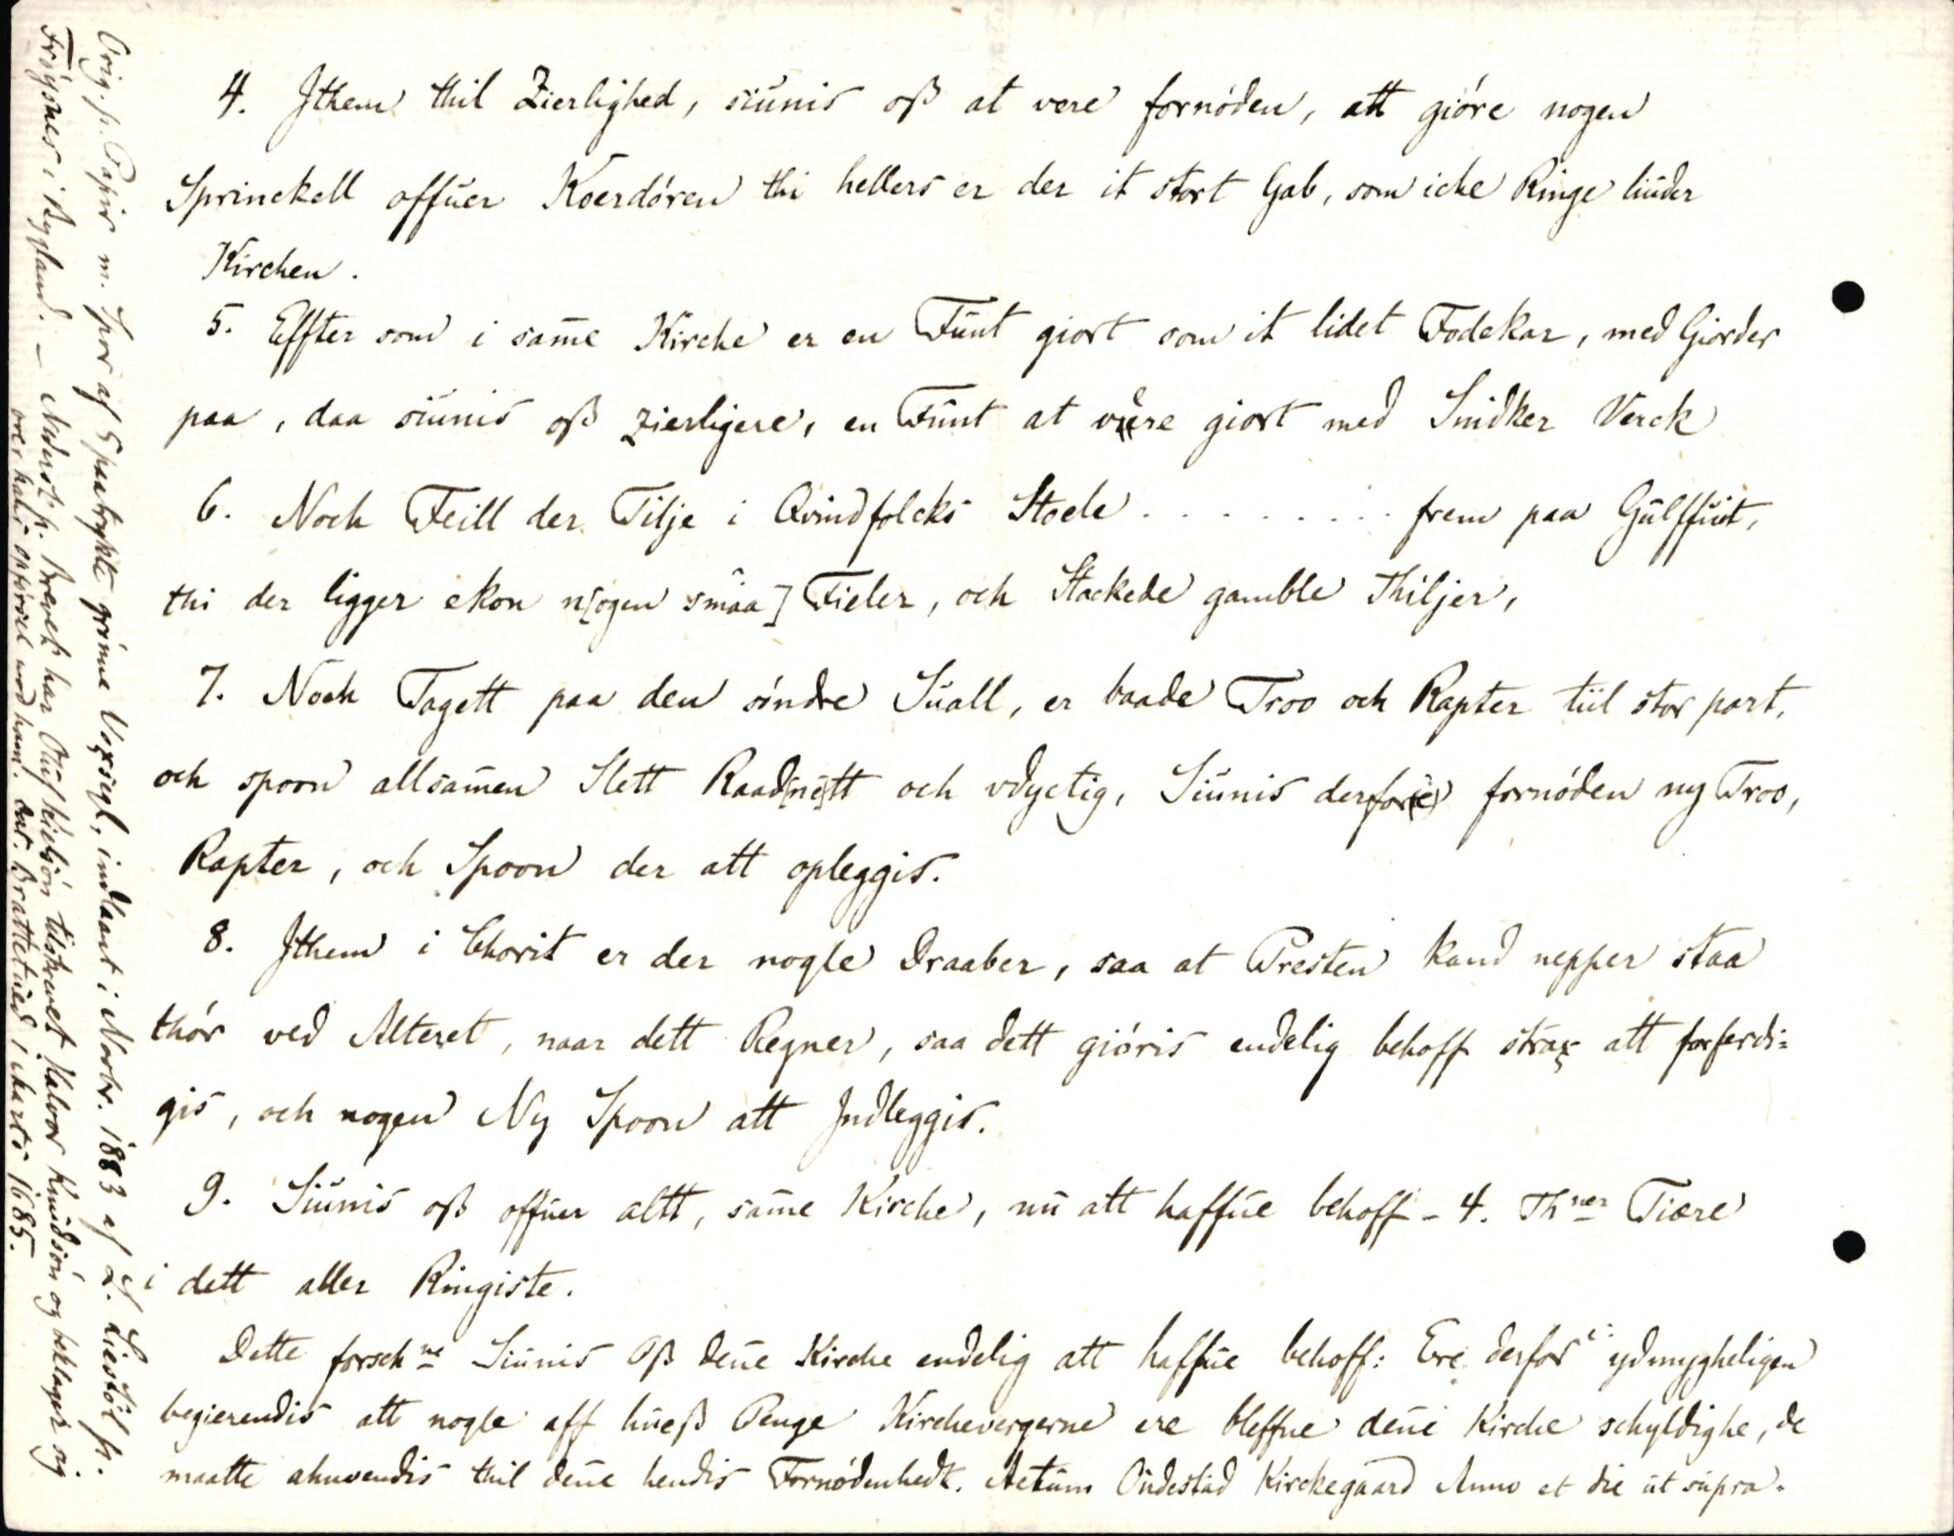 4. Jthem thil Zierlighed, siunis oß at vere fornöden, att giöre nogen
Sprinckell offuer Koerdören thi hellers er der it stort Gab, som icke Ringe liuder
Kirchen.
5. Effter som i sam̄e Kirche er en Funt giort som it lidet Fodekar, med Giorder
paa, daa siunis oß zierligere, en Funt at vere giort med Snidker Verck
6. Noch Feill der Tilje i Qvindfolcks Stoele . . . . . . . . . frem paa Gulffuit,
thi der ligger ekon n[ogen smaa] Fieler, och Stackede gamble Thiljer,
7. Noch Tagett paa den söndre Suall, er baade Troo och Rapter tiil stor part,
och spoon allsam̄en Slett Raad[ne]tt och vdyctig, Siunis derfor(e) fornöden ny Troo,
Rapter, och Spoon der att opleggis.
8. Jthem i Chorit er der nogle Draaber, saa at Presten kand nepper staa
thör ved Alteret, naar dett Regner, saa dett giöris endelig behoff strax att forferdi=
gis, och nogen Ny Spoon att Jndleggis.
9. Siunis oß offuer altt, sam̄e Kirche, nu att haffue behoff - 4. Thner Tiære
i dett aller Ringiste.
Dette forschne Siunis Oß den̄e Kirche endelig att haffue behoff: Ere derfore ydmygheligen
begierendis att nogle aff hueß Penge Kirchevergerne ere bleffne den̄e Kirche schyldighe, de
maatte ahnvendis thil den̄e hendis Fornödenhedt. Actum Oudestad Kirckegaard Anno et die ut supra.
Orig. p. Papir m. Spor af 5 paatrykte grönne Voxsegl, indlaant i Novbr. 1883 af L. Liestöl p.
Fröysnes i Bygland. – Nederst p. Brevet har Oluf Kielsön tilskrevet Halvor Knudsön og beklaget sig
over hans opförsel mod ham. dat. Brattetued, i Marts 1685.